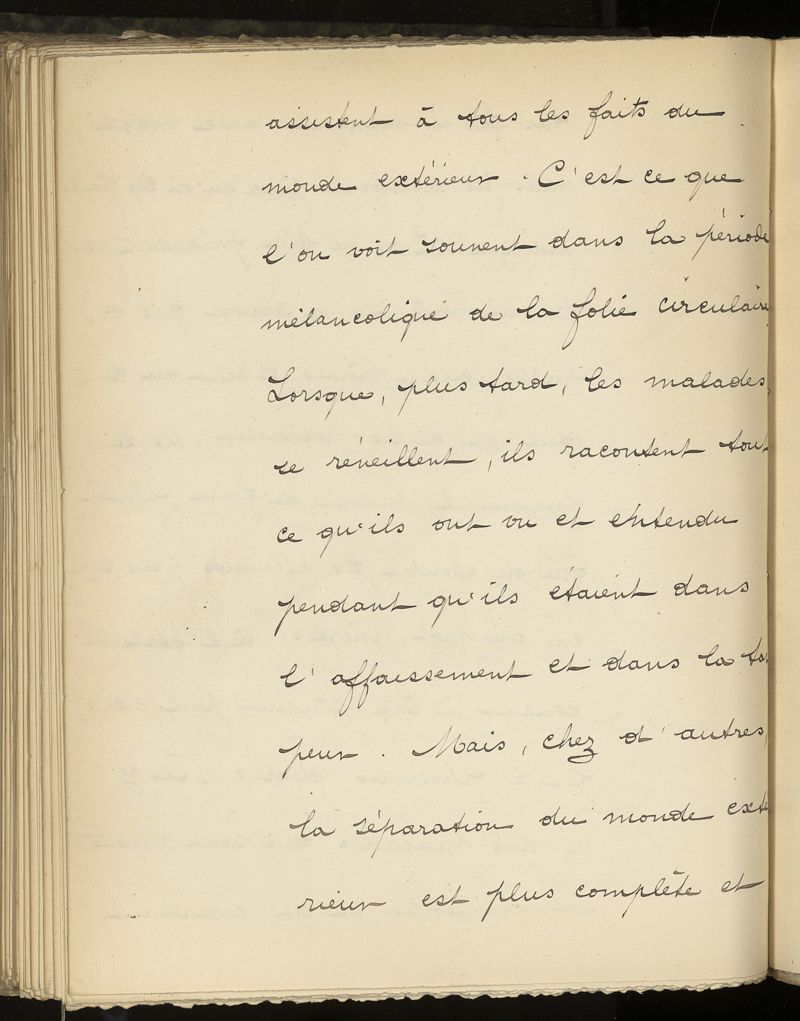 assistent à tous les faits du
monde extérieur. C'est ce que
l'on voit souvent dans la période
mélancolique de la folie circulaire.
Lorsque, plus tard, les malades,
se réveillent, ils racontent tout
ce qu'ils ont vu et entendu
pendant qu'ils étaient dans
l'affaissement et dans la tor
peur. Mais, chez d'autres,
la séparation du monde exté
rieur est plus complète et